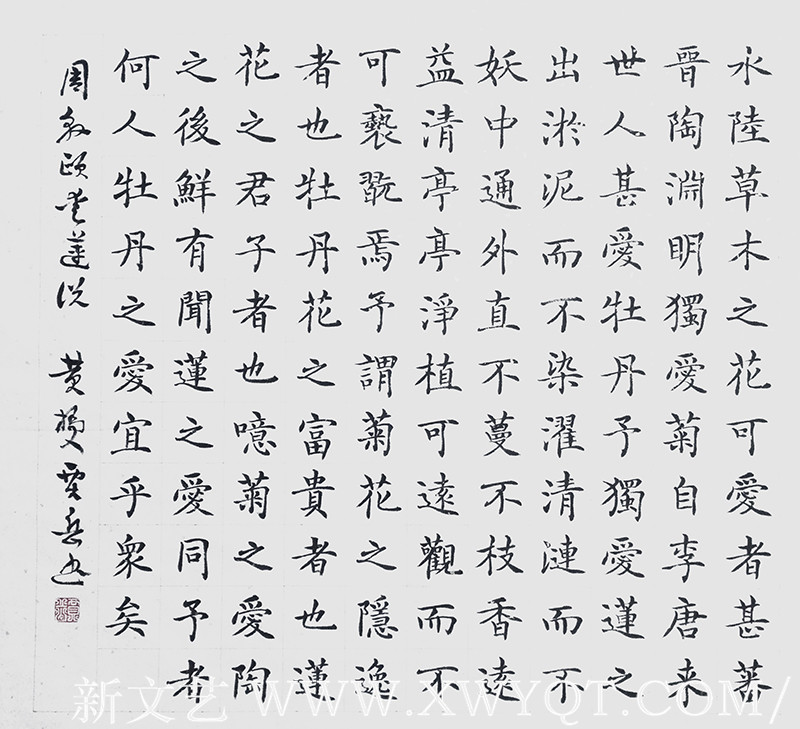 水陸草木之花可愛者甚蕃
晉陶淵明獨愛菊自李唐来
世人甚愛牡丹予獨愛蓮之
出淤泥而不染濯清漣而不
妖中通外直不蔓不枝香遠
益清亭亭淨植可遠觀而不
可褻翫焉予謂菊花之隱逸
者也牡丹花之富貴者也蓮
花之君子者也噫菊之愛陶
之後鮮有聞蓮之愛同予者
何人牡丹之愛宜乎衆矣
周敦頤爱蓮说 黄
新文艺 WWW.XWYQT.COM/